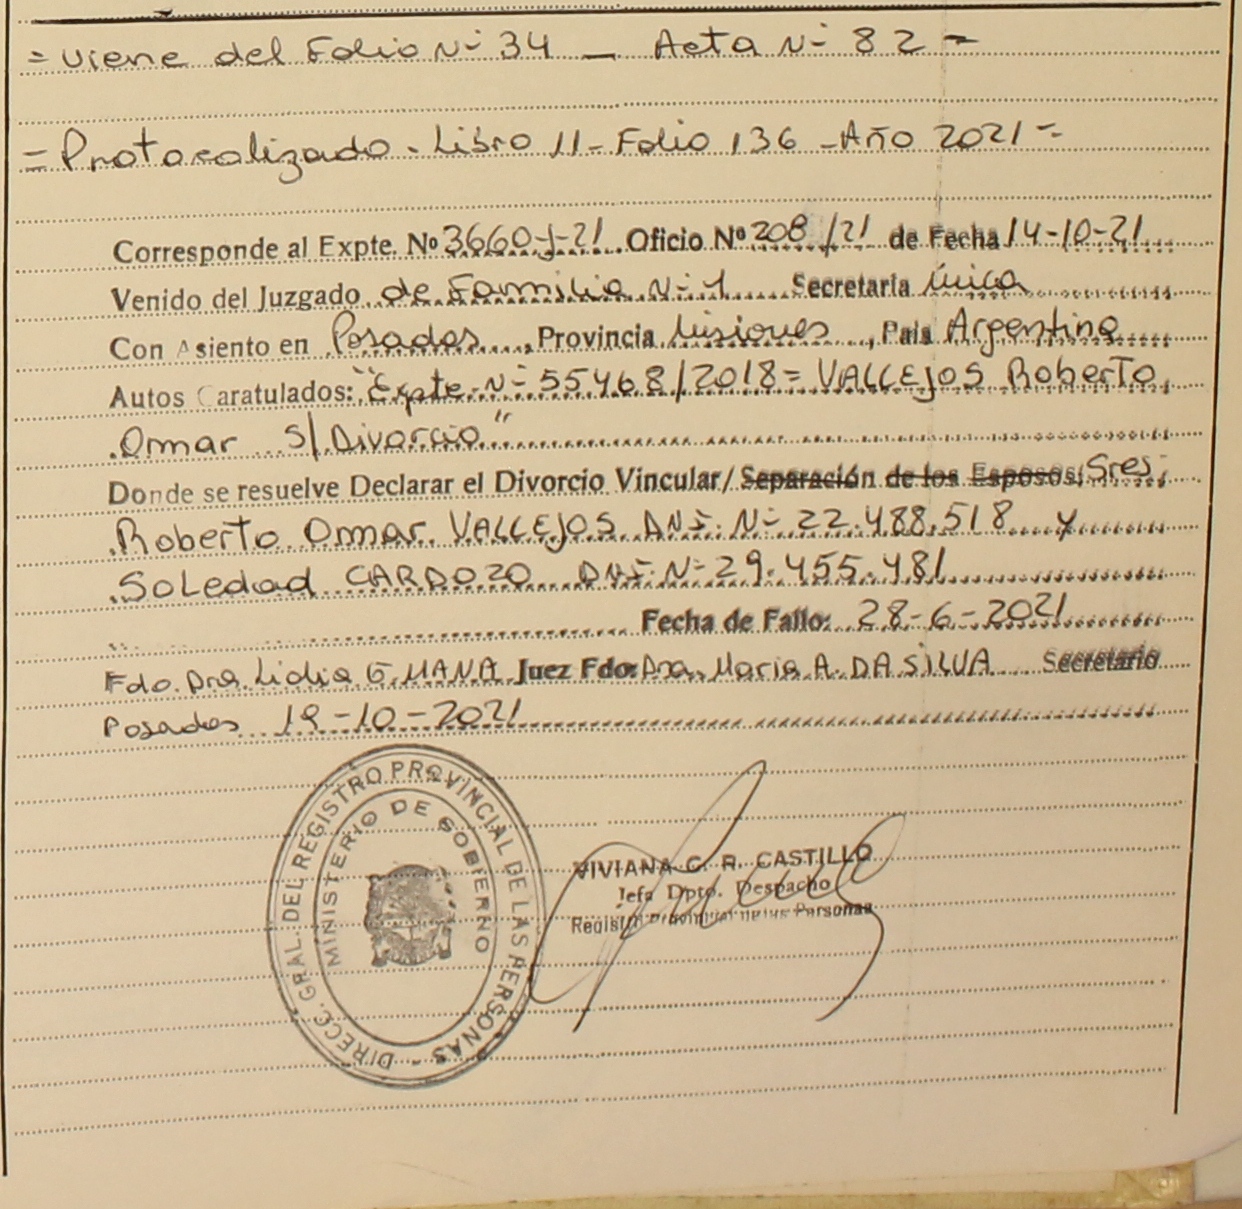 = Viene del Folio Nº 34 _ Acta Nº 82 =
= Protocolizado - Libro 11 - Folio 136 - Año 2021 =
Corresponde al Expte. Nº 3660-J-21 Oficio Nº 208/21 de Fecha 14-10-21
Venido del Juzgado de Familia Nº 1 Secretaria Única
Con Asiento en Posadas, Provincia Misiones, Pais Argentina
Autos Caratulados: "Expte Nº 55468/2018 = VALLEJOS Roberto
Omar S/Divorcio"
Donde se resuelve Declarar el Divorcio Vincular/ Separación de los Esposos: Sres;
Roberto Omar VALLEJOS DNI Nº 22.488.518 y
Soledad CARDOZO DNI Nº 29.455.481
Fecha de Fallo: 28-6-2021
Fdo. Dra. Lidia E. MANA Juez Fdo: Dra. Maria A. DA SILVA Secretario
Posadas 19-10-2021
DIRECC. GRAL. DEL REGISTRO PROVINCIAL DE LAS PERSONAS
MINISTERIO DE GOBIERNO
VIVIANA C. R. CASTILLO
Jefa Dpto. Despacho
Registro Provincial de las Personas